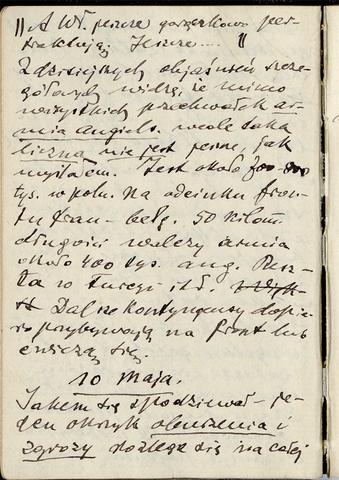 "A Wł. jeszcze gorączkowo per-
traktują. Jeszcze.... "
Z dzisiejszych objaśnień szcze-
gółowych widzę, że mimo
wszystkich przechwałek ar-
mia angiels. wcale taka
liczna nie jest jeszcze, jak
myślałem. Jest około
tys. w polu. Na odcinku fron-
tu fran-belg. 50 kilom.
długości walczy armia
około 400 tys. ang. Resz-
ta w Turcji itd.
Dalsze kontyngensy dopie-
ro przybywają na front lub
ćwiczą się.
10 maja.
Jakem się spodziewał - je-
den okrzyk oburzenia i
zgrozy rozlega się na całej